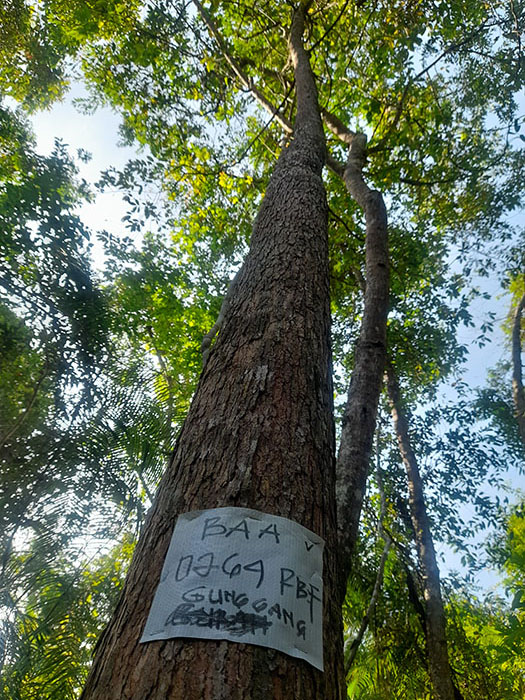 BAA
0264 RBF
GUNGGANG